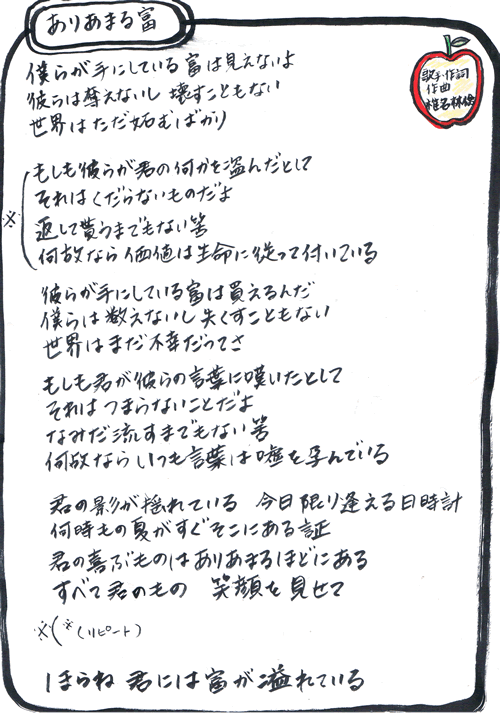 ありあまる富
歌手・作詞
作曲
椎名林檎
僕らが手にしている富は見えないよ
彼らは奪えないし 壊すこともない
世界はただ妬むばかり
もしも彼らが君の何かを盗んだとして
それはくだらないものだよ
※
返して貰うまでもない筈
何故なら価値は生命に従って付いている
彼らが手にしている富は買えるんだ
僕らは数えないし失くすこともない
世界はまだ不幸だってさ
もしも君が彼らの言葉に嘆いたとして
それはつまらないことだよ
なみだ流すまでもない筈
何故ならいつも言葉は嘘を孕んでいる
君の影が揺れている 今日限り逢える日時計
何時もの夏がすぐそこにある証
君の喜ぶものはありあまるほどにある
すべて君のもの 笑顔を見せて
※(※(リピート)
ほらね 君には富が溢れている